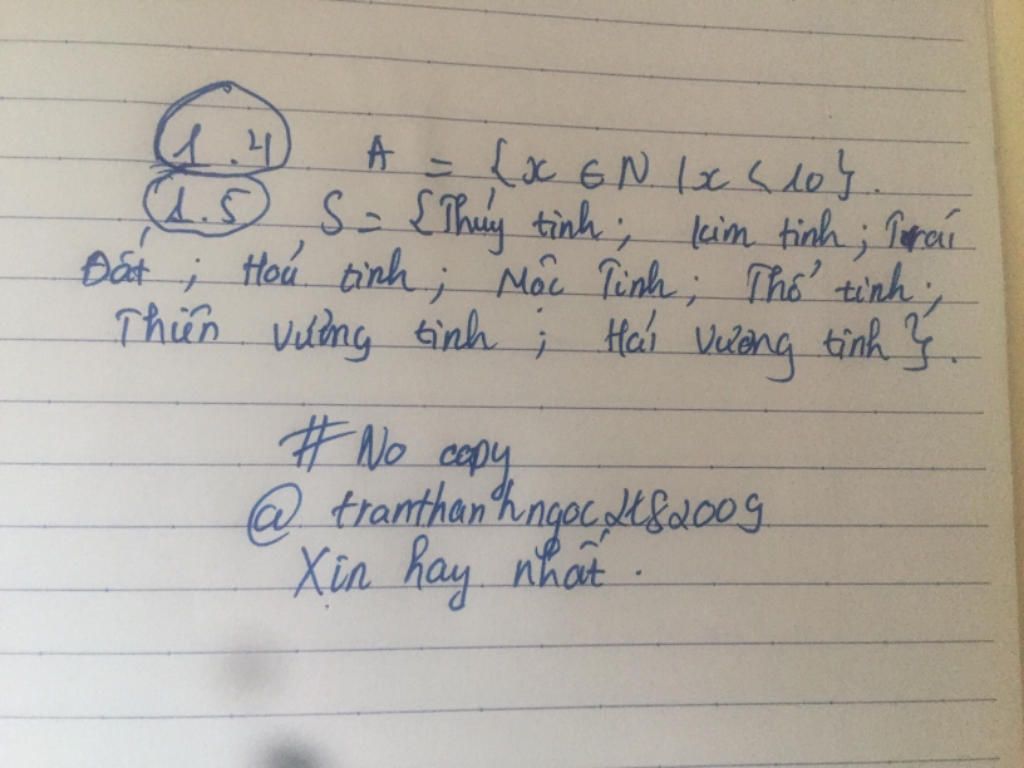 1.4 A = {x ∈ N | x < 10}.
1.5 S = {Thủy tinh; Kim tinh; Trái
Đất; Hoả tinh; Mộc Tinh; Thổ tinh;
Thiên Vương tinh; Hải Vương tinh}.
# No copy
@ tranthanhngoc2182009
Xin hay nhất.